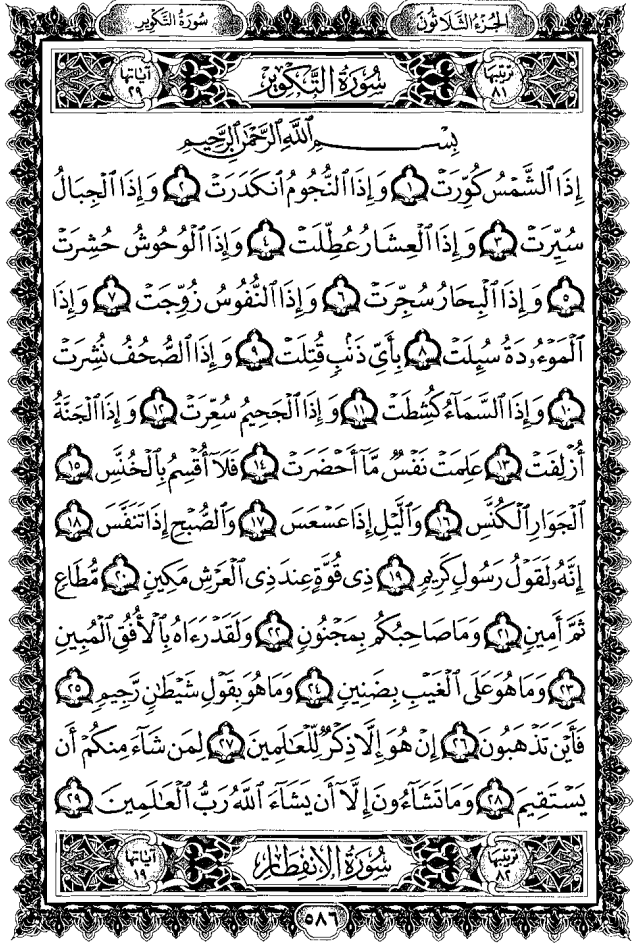 سُورَةُ التَّكْوِيرِ الجُزْءُ الثَّلَاثُونَ
ترتيبها ٨١ سُورَةُ التَّكْوِيرِ آياتها ٢٩
بِسْمِ ٱللَّهِ ٱلرَّحْمَٰنِ ٱلرَّحِيمِ
إِذَا ٱلشَّمْسُ كُوِّرَتْ ١ وَإِذَا ٱلنُّجُومُ ٱنكَدَرَتْ ٢ وَإِذَا ٱلْجِبَالُ
سُيِّرَتْ ٣ وَإِذَا ٱلْعِشَارُ عُطِّلَتْ ٤ وَإِذَا ٱلْوُحُوشُ حُشِرَتْ
٥ وَإِذَا ٱلْبِحَارُ سُجِّرَتْ ٦ وَإِذَا ٱلنُّفُوسُ زُوِّجَتْ ٧ وَإِذَا
ٱلْمَوْءُۥدَةُ سُئِلَتْ ٨ بِأَيِّ ذَنۢبٍ قُتِلَتْ ٩ وَإِذَا ٱلصُّحُفُ نُشِرَتْ
١٠ وَإِذَا ٱلسَّمَآءُ كُشِطَتْ ١١ وَإِذَا ٱلْجَحِيمُ سُعِّرَتْ ١٢ وَإِذَا ٱلْجَنَّةُ
أُزْلِفَتْ ١٣ عَلِمَتْ نَفْسٌ مَّآ أَحْضَرَتْ ١٤ فَلَآ أُقْسِمُ بِٱلْخُنَّسِ ١٥
ٱلْجَوَارِ ٱلْكُنَّسِ ١٦ وَٱلَّيْلِ إِذَا عَسْعَسَ ١٧ وَٱلصُّبْحِ إِذَا تَنَفَّسَ ١٨
إِنَّهُۥ لَقَوْلُ رَسُولٍ كَرِيمٍ ١٩ ذِى قُوَّةٍ عِندَ ذِى ٱلْعَرْشِ مَكِينٍ ٢٠ مُّطَاعٍ
ثَمَّ أَمِينٍ ٢١ وَمَا صَاحِبُكُم بِمَجْنُونٍ ٢٢ وَلَقَدْ رَءَاهُ بِٱلْأُفُقِ ٱلْمُبِينِ
٢٣ وَمَا هُوَ عَلَى ٱلْغَيْبِ بِضَنِينٍ ٢٤ وَمَا هُوَ بِقَوْلِ شَيْطَٰنٍ رَّجِيمٍ ٢٥
فَأَيْنَ تَذْهَبُونَ ٢٦ إِنْ هُوَ إِلَّا ذِكْرٌ لِّلْعَٰلَمِينَ ٢٧ لِمَن شَآءَ مِنكُمْ أَن
يَسْتَقِيمَ ٢٨ وَمَا تَشَآءُونَ إِلَّآ أَن يَشَآءَ ٱللَّهُ رَبُّ ٱلْعَٰلَمِينَ ٢٩
ترتيبها ٨٢ سُورَةُ الِانْفِطَارِ آياتها ١٩
٥٨٦